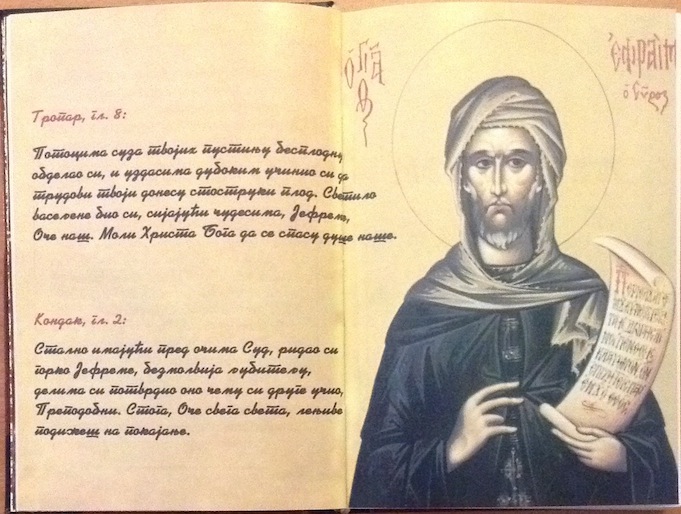 Тропар, гл. 8:
Потоцима суза твојих пустињу бесплодну
обделао си, и уздасима дубоким учинио си да
трудови твоји донесу стоструки плод. Светило
васељене био си, сијајући чудесима, Јефреме,
Оче наш. Моли Христа Бога да се спасу душе наше.
Кондак, гл. 2:
Стално имајући пред очима Суд, ридао си
горко Јефреме, безмолвија љубитељу,
делима си потврдио оно чему си друге учио,
Преподобни. Стога, Оче свега света, лењиве
подижеш на покајање.